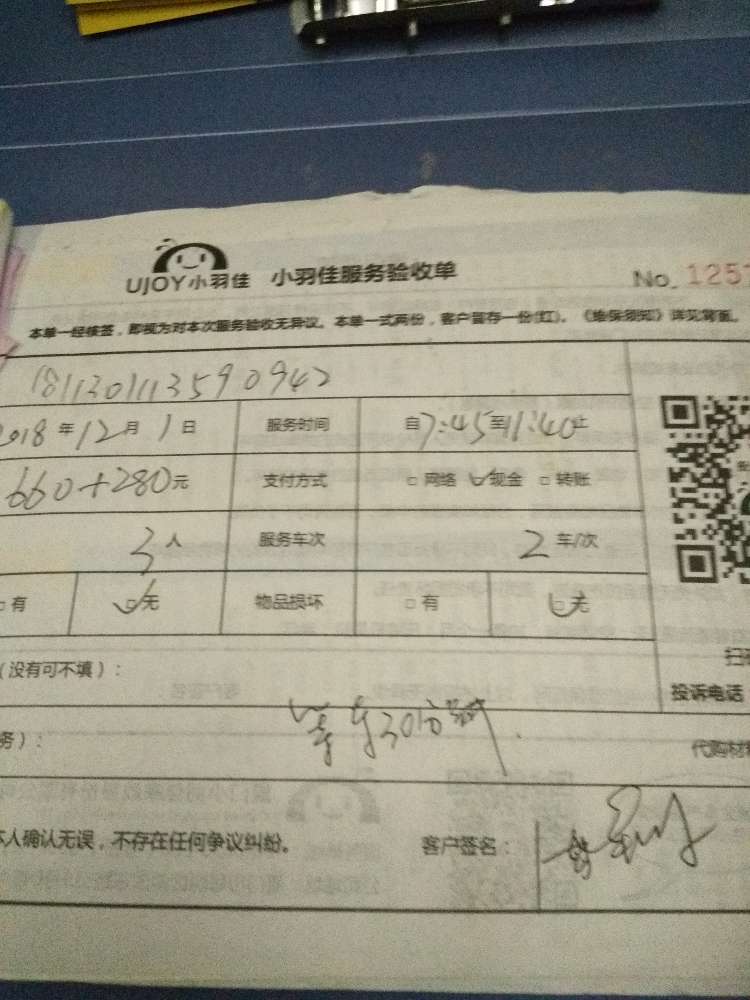 UJOY小羽佳 小羽佳服务验收单 No. 1257
本单一经核签，即视为对本次服务验收无异议。本单一式两份，客户留存一份(红)。《维保须知》详见背面。
1811301135990942
2018年12月1日 服务时间 自7:45至11:40止
660+280元 支付方式 □网络 ☑现金 □转账
3人 服务车次 2车/次
□有 ☑无 物品损坏 □有 ☑无
扫
（没有可不填）： 投诉电话
等车30分钟
务）： 代购材料
本人确认无误，不存在任何争议纠纷。 客户签名：